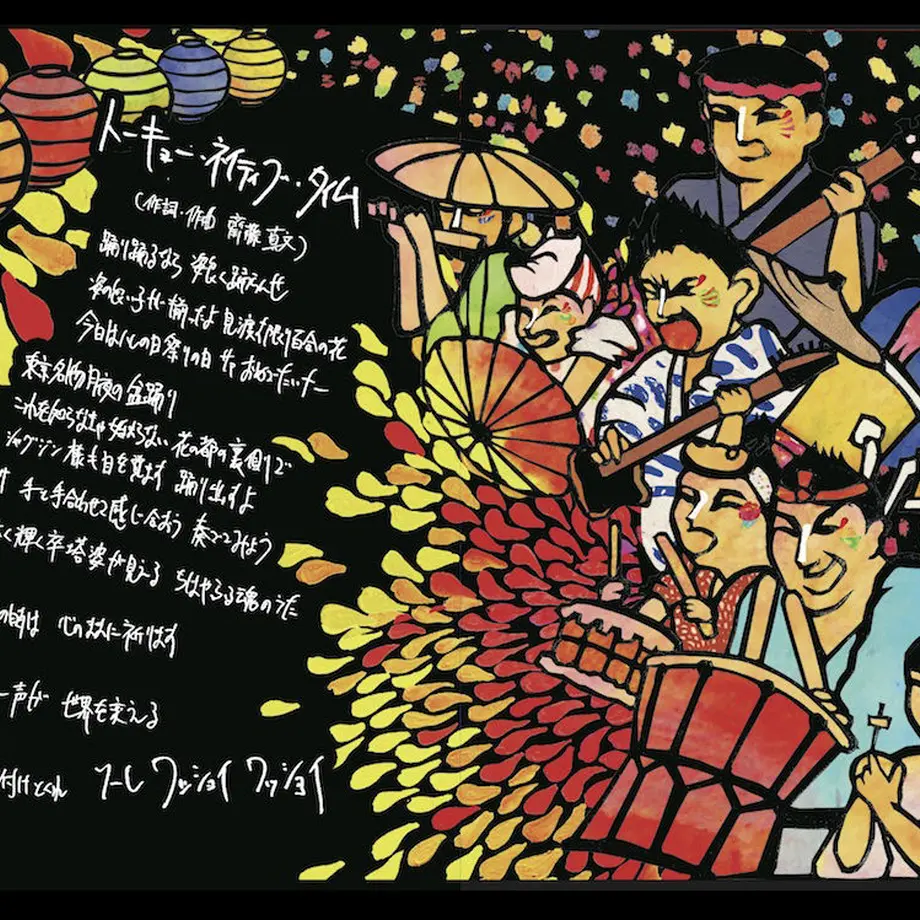 トーキョー・ネイティブ・タイム
(作詞・作曲 齊藤真文)
踊り踊るなら 姿良く踊らんせ
姿の良い子が揃ったよ 見渡す限り百合の花
今日はハレの日祭りの日 サァ おめでたいナー
東京名物月夜の盆踊り
これを知らなきゃ始まらない 花の都の裏側で
ジャクソン様も目を覚ます 踊り出すよ
手と手合わせて感じ合おう 奏でてみよう
く輝く卒塔婆が見える ちはやふる魂のうた
の時は 心のままに祈ります
声が 世界を変える
付けとくれ ソーレ ワッショイ ワッショイ